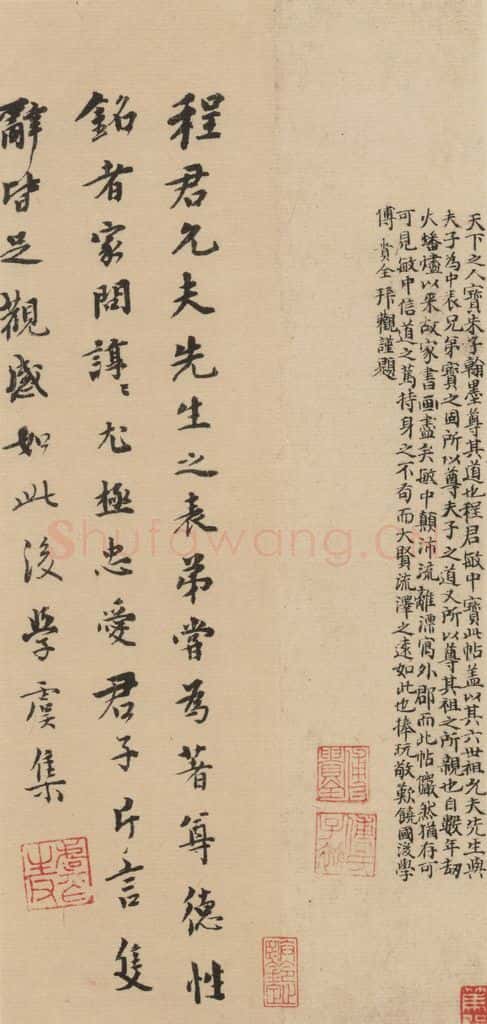 天下之人寶朱子翰墨尊其道也程君敏中寶此帖蓋以其六世祖允夫先生與
夫子為中表兄弟寶之固所以尊夫子之道又所以尊其祖之所親也自數年劫
火燔燼以来故家書画盡矣敏中顛沛流離漂寓外郡而此帖儼然猶存可
可見敏中信道之篤持身之不苟而大賢流澤之遠如此也捧玩敬歎饒國後學
傅貴全拜觀謹題
程君允夫先生之表弟嘗為著尊德性
銘者家問諄〻尤極忠愛君子片言隻
辭皆足觀感如此後學虞集
Shufawang.cn